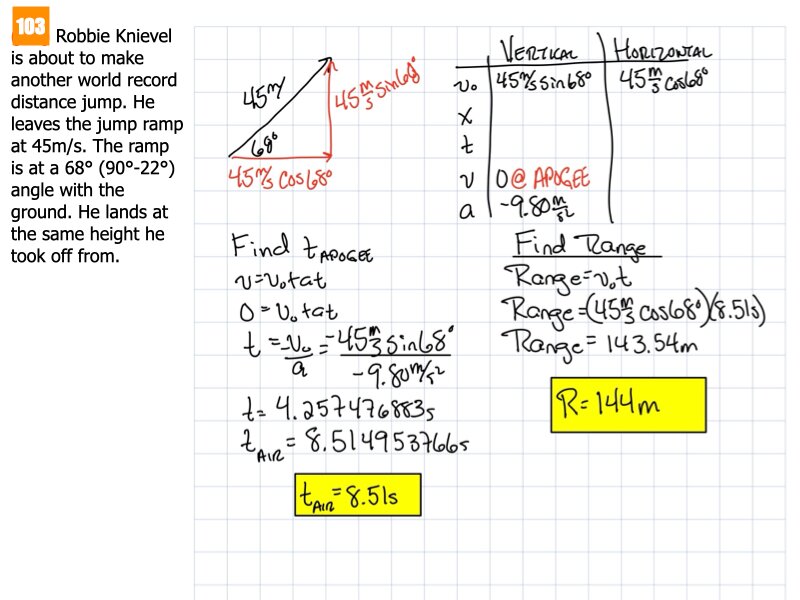 103
Robbie Knievel
is about to make
another world record
distance jump. He
leaves the jump ramp
at 45m/s. The ramp
is at a 68° (90°-22°)
angle with the
ground. He lands at
the same height he
took off from.
45m/s
45 m/s sin68°
68°
45m/s cos68°
VERTICAL HORIZONTAL
v₀ 45m/s sin68° 45 m/s cos68°
x
t
v 0 @ APOGEE
a -9.80 m/s²
Find t APOGEE
v=v₀+at
0=v₀+at
t = -v₀/a = -45 m/s sin68° / -9.80m/s²
t= 4.257476883s
t AIR = 8.514953766s
t AIR = 8.51s
Find Range
Range=v₀t
Range=(45 m/s cos68°)(8.51s)
Range= 143.54m
R= 144m